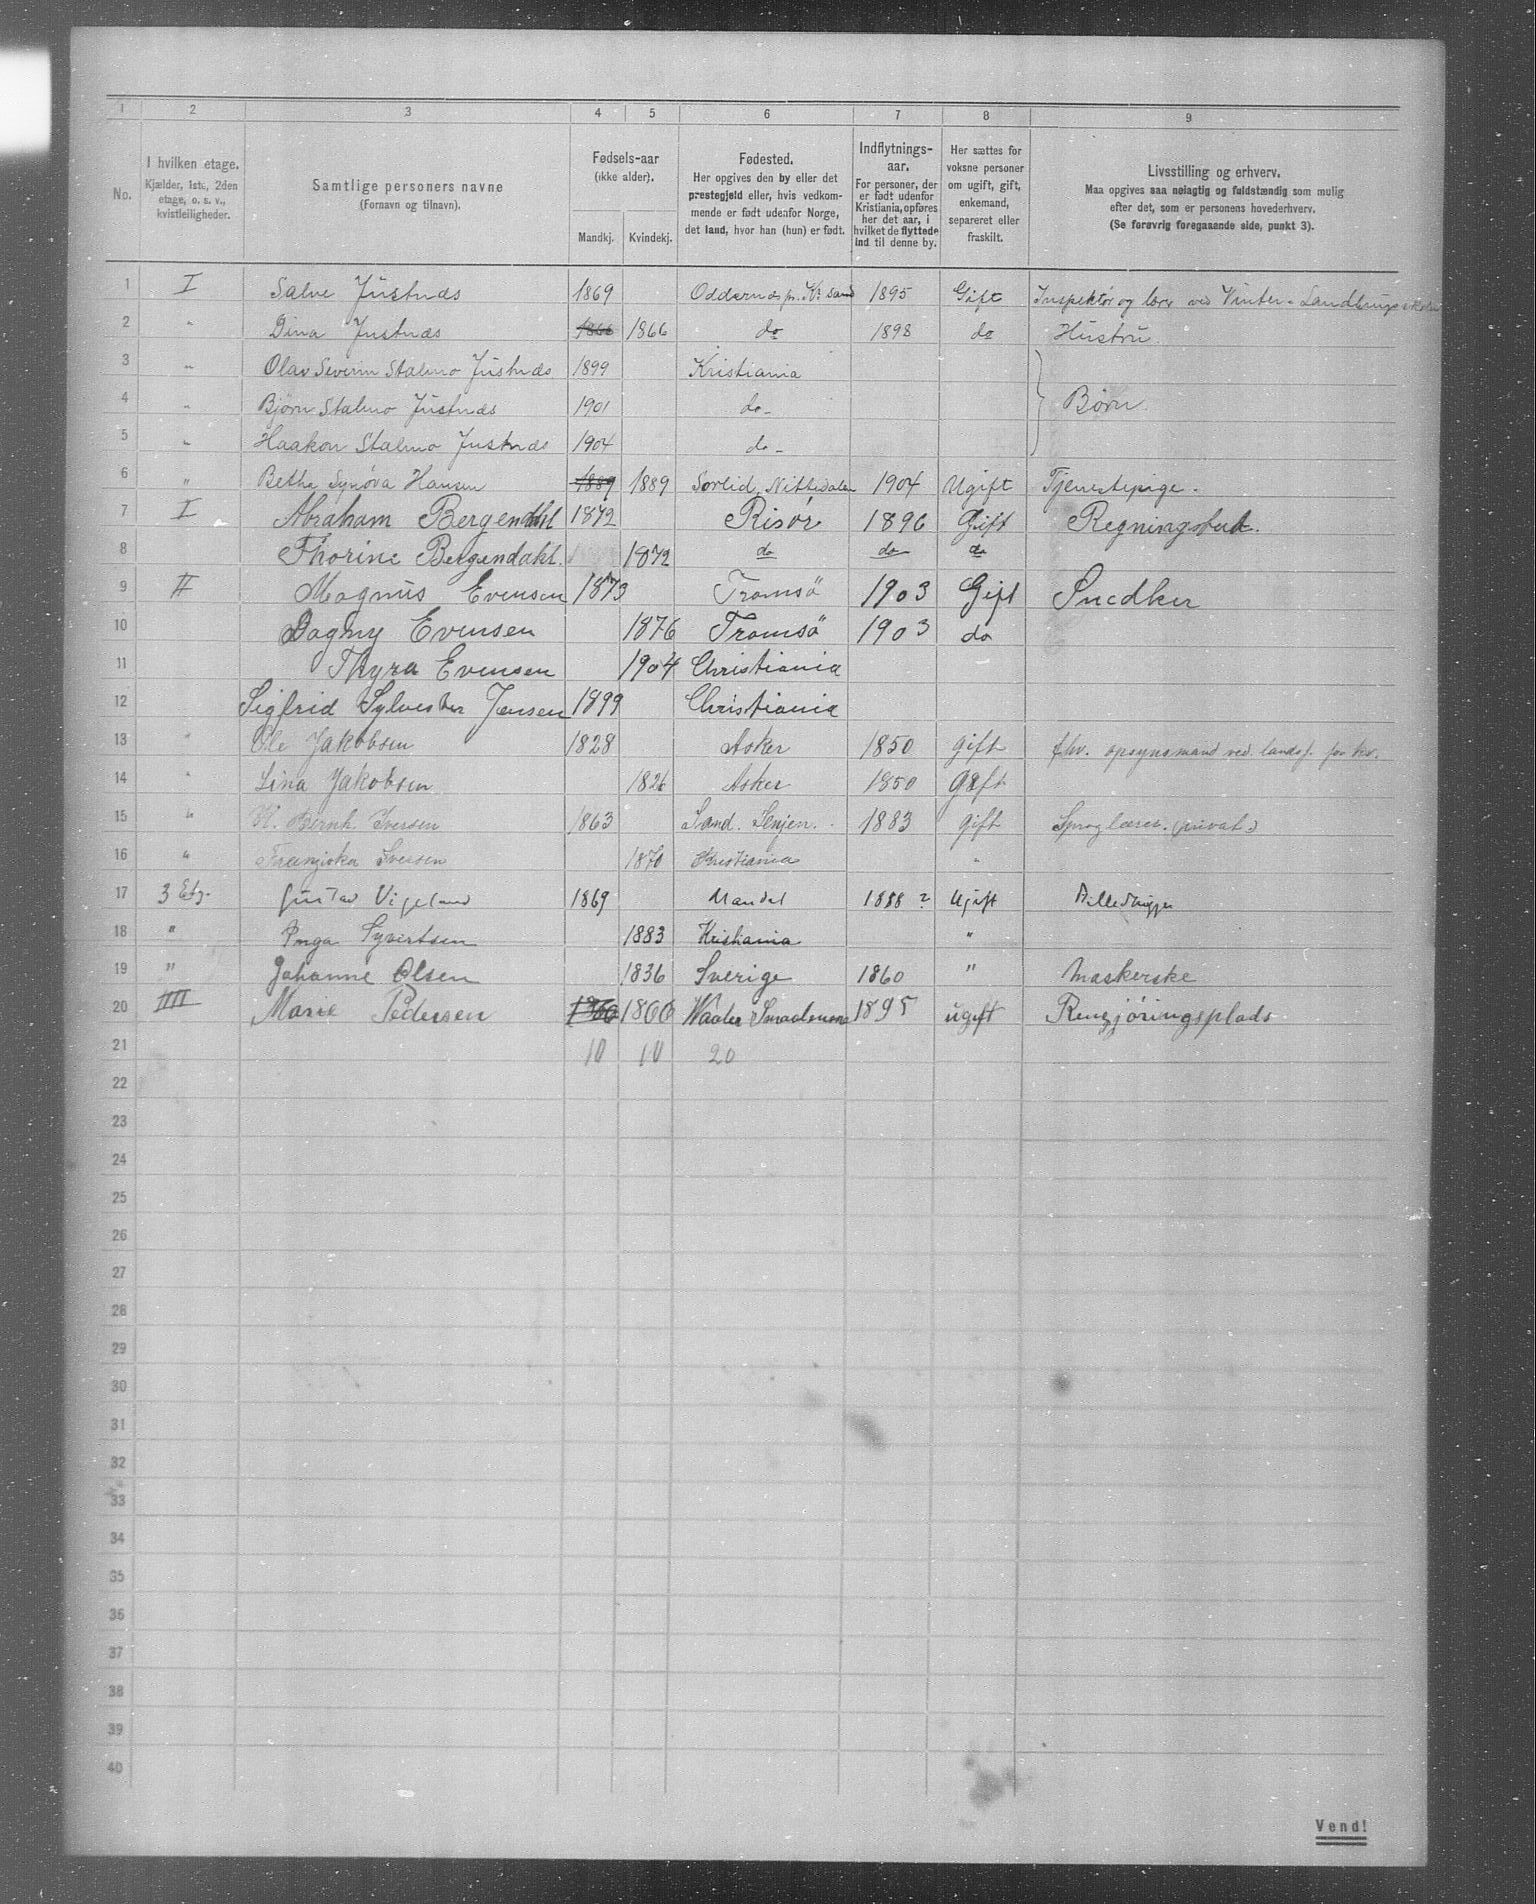 1 2 3 4 5 6 7 8 9
No.
I hvilken etage.
Kjælder, 1ste, 2den
etage, o. s. v.,
kvistleiligheder.
Samtlige personers navne
(Fornavn og tilnavn).
Fødsels-aar
(ikke alder).
Mandkj. Kvindekj.
Fødested.
Her opgives den by eller det
prestegjeld eller, hvis vedkom-
mende er født udenfor Norge,
det land, hvor han (hun) er født.
Indflytnings-
aar.
For personer, der
er født udenfor
Kristiania, opføres
her det aar, i
hvilket de flyttede
ind til denne by.
Her sættes for
voksne personer
om ugift, gift,
enkemand,
separeret eller
fraskilt.
Livsstilling og erhverv.
Maa opgives saa nøiagtig og fuldstændig som mulig
efter det, som er personens hovederhverv.
(Se forøvrig foregaaende side, punkt 3).
1 I Salve Justnæs 1869 Oddernæs p. Kr sand 1895 Gift Inspektør og lærer ved Vinter-Landbrugsskolen
2 " Dina Justnæs 1866 1866 do 1898 do Hustru
3 " Olav Severin Stalmo Justnæs 1899 Kristiania
4 " Bjørn Stalmo Justnæs 1901 do- Børn
5 " Haakon Stalmo Justnæs 1904 do-
6 " Bethe Synøva Hansen 1889 1889 Nittedalen 1904 Ugift Tjenestepige.
7 I Abraham Bergendahl 1872 Risør 1896 Gift
8 Thorine Bergendahl. 1872 do do do
9 II Magnus Evensen 1873 Tromsö 1903 Gift Snedker
10 Dagny Evensen 1876 Tromsö 1903 do
11 Thyra Evensen 1904 Christiania
12 Sigfrid Sylvester Jensen 1899 Christiania
13 " Ole Jakobsen 1828 Asker 1850 gift fhv. opsynsmand ved
14 " Lina Jakobsen 1826 Asker 1850 Gift
15 " K. Bernh. Iversen 1863 Sand. Senjen. 1883 gift Sproglærer. (privat)
16 " Franziska Iversen 1870 Kristiania "
17 3 Etg. Gustav Vigeland 1869 Mandal 1888 ? Ugift Billedhugger
18 " Inga Syvertsen 1883 Kristiania "
19 " Johanne Olsen 1836 Sverige 1860 " Maskerske
20 IIII Marie Pedersen 1866 1866 Waaler Smaalenene 1895 ugift Rengjøringsplads
21 10 10 20
22
23
24
25
26
27
28
29
30
31
32
33
34
35
36
37
38
39
40
Vend!